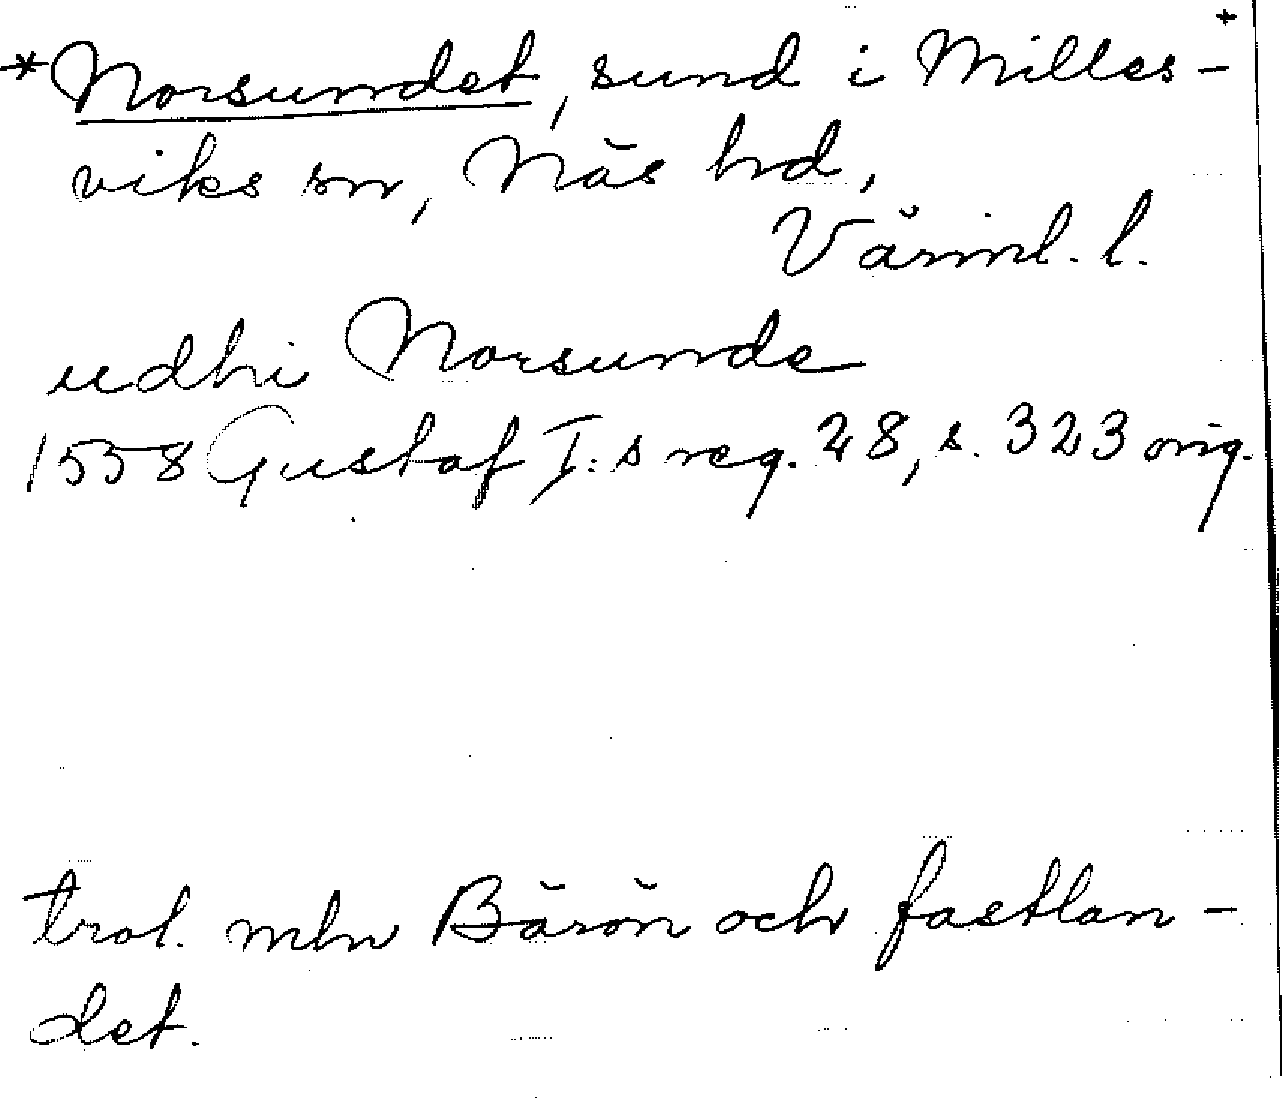 +
*Norsundet, sund i Milles-
viks sn, Näs hd,
Värml. l.
udhi Norsunde
1558 Gustaf I:s reg. 28, s. 323 orig.
trol. mln Bärön och fastlan-
det.